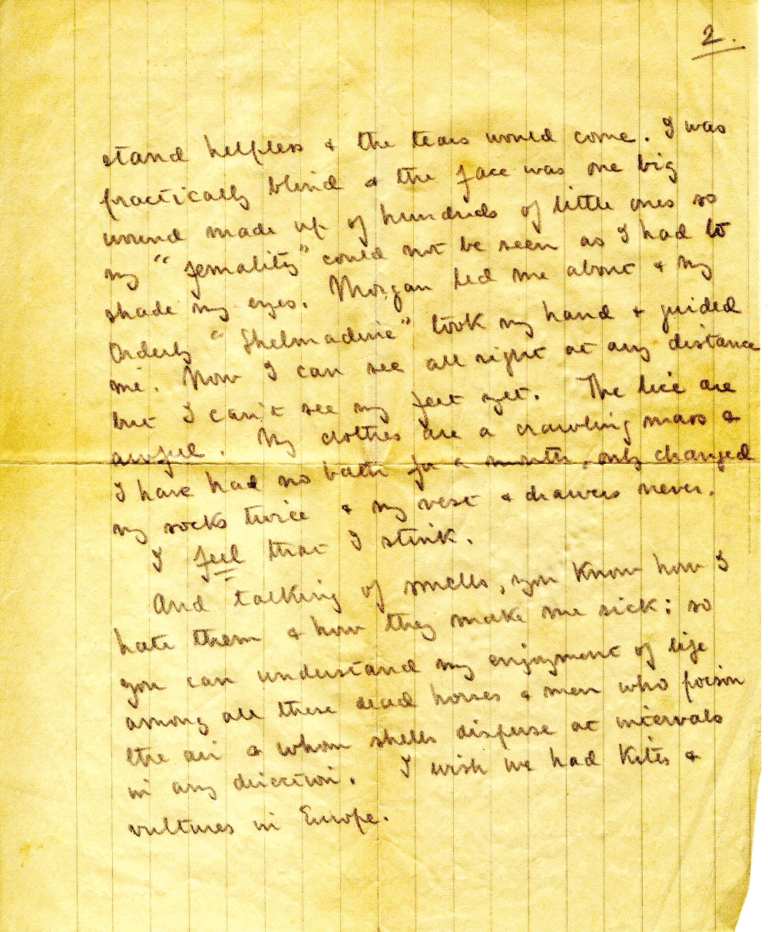 2.
stand helpless & the tears would come. I was
practically blind & the face was one big
wound made up of hundreds of little ones so
my "femality" could not be seen as I had to
shade my eyes. Morgan led me about & my
Orderly "Shelmadine" took my hand & guided
me. Now I can see all right at any distance
but I can't see my feet yet. The lice are
awful. My clothes are a crawling mass &
I have had no bath for a month, only changed
my socks twice & my vest & drawers never.
I feel that I stink.
And talking of smells, you know how I
hate them & how they make me sick; so
you can understand my enjoyment of life
among all these dead horses & men who poison
the air & whom shells disperse at intervals
in any direction. I wish we had kites &
vultures in Europe.